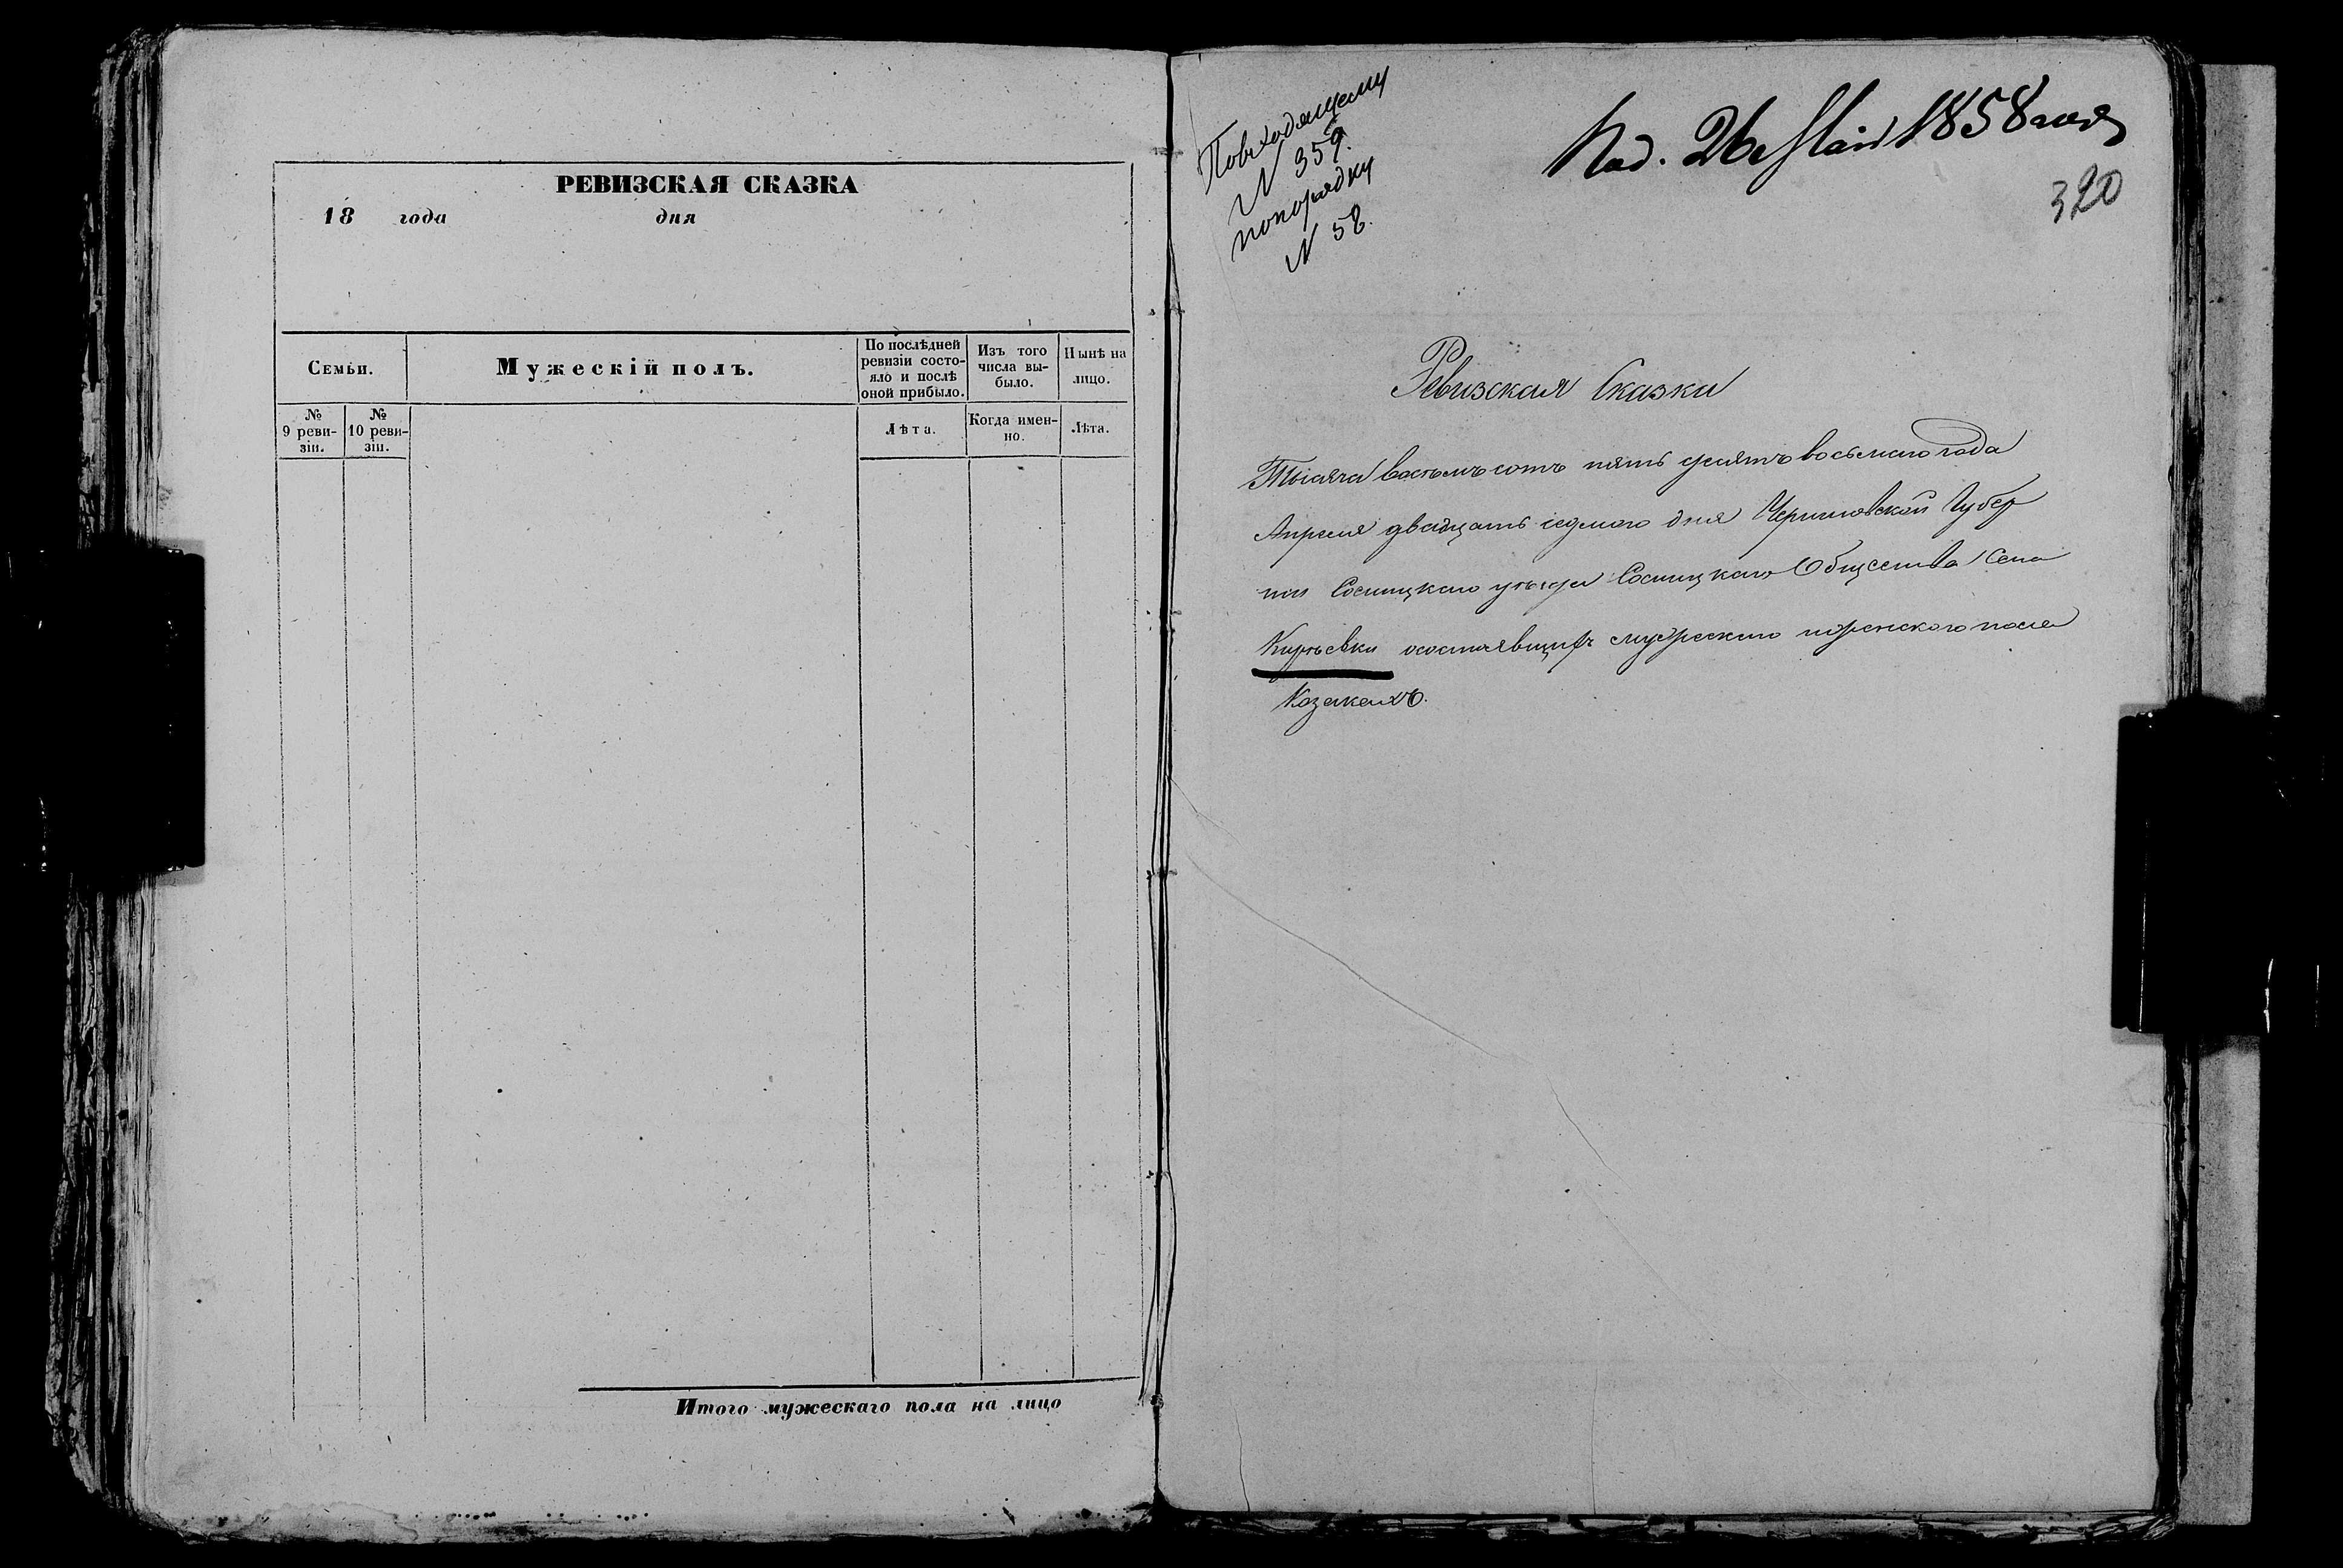 РЕВИЗСКАЯ СКАЗКА
18 года дня
Семьи.
Мужескій полъ.
По послѣдней
ревизіи состо-
яло и послѣ
оной прибыло.
Изъ того
числа вы-
было.
Нынѣ на
лицо.
№
9 реви-
зіи.
№
10 реви-
зіи.
Лѣта.
Когда имен-
но.
Лѣта.
Итого мужескаго пола на лицо
Повходящему
N 359.
попорядку
N 58.
Под. 26 Мая 1858 года
320
Ревизская Сказка
Тысяча восемь сотъ пять десятъ восьмого года
Апреля двадцать седмого дня Черниговской Губер
нии Сосницкаго уезда Сосницкаго Общества Села
осостоявщихъ мужеского иженского пола
Козакахъ.